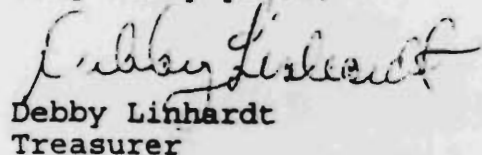 Debby Linhardt
Debby Linhardt
Treasurer